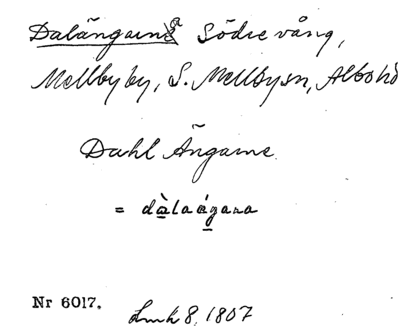 Dalängarna Södre vång,
Mellby by, S. Mellby sn, Albo hd
Dahl Ängarne
= dàlaágara
Nr 6017.
Lmk 8, 1807